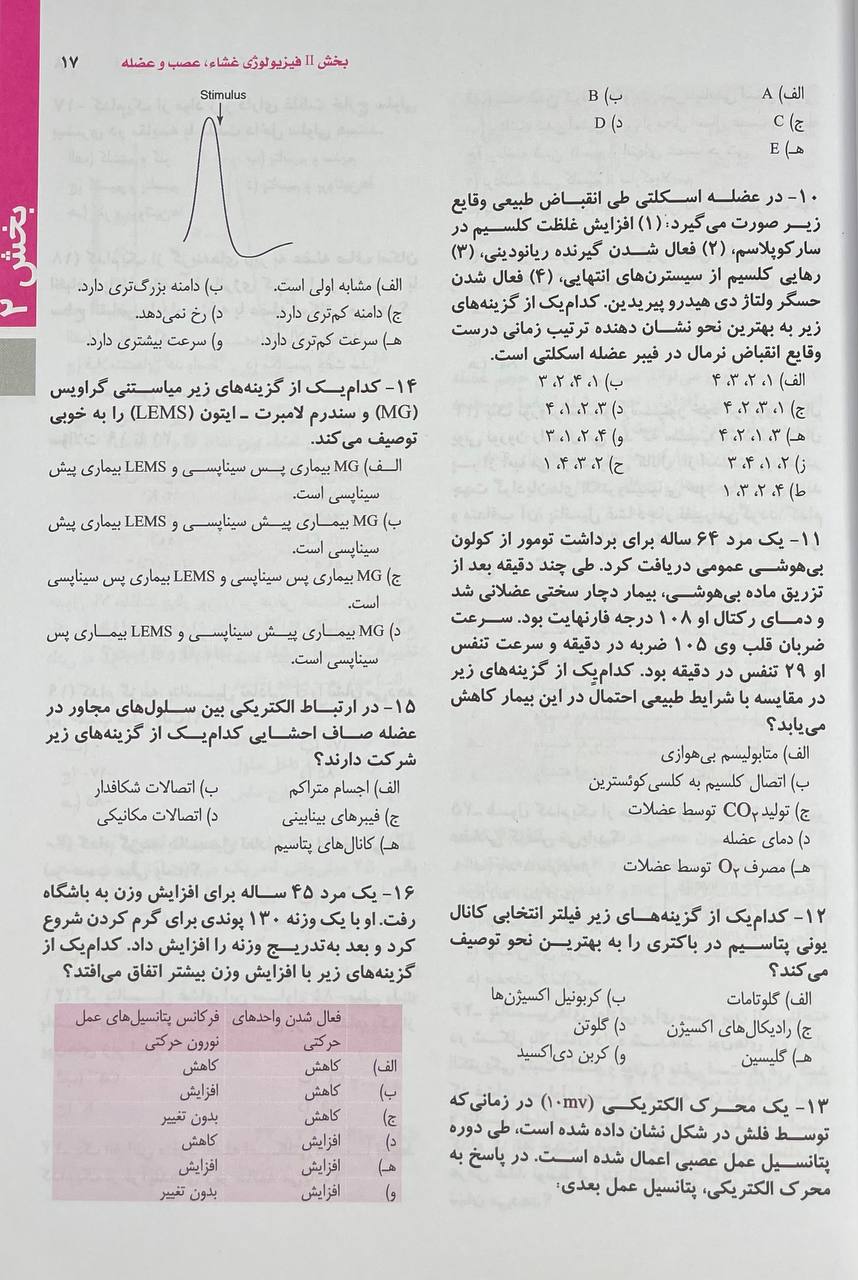 بخش II فیزیولوژی غشاء، عصب و عضله ۱۷
بخش ۲
الف) A ب) B
ج) C د) D
هـ) E
۱۰- در عضله اسکلتی طی انقباض طبیعی وقایع
زیر صورت می‌گیرد: (۱) افزایش غلظت کلسیم در
سارکوپلاسم، (۲) فعال شدن گیرنده ریانودینی، (۳)
رهایی کلسیم از سیسترن‌های انتهایی، (۴) فعال شدن
حسگر ولتاژ دی هیدرو پیریدین. کدام‌یک از گزینه‌های
زیر به بهترین نحو نشان دهنده ترتیب زمانی درست
وقایع انقباض نرمال در فیبر عضله اسکلتی است.
الف) ۱، ۲، ۳، ۴ ب) ۱، ۴، ۲، ۳
ج) ۱، ۳، ۲، ۴ د) ۲، ۳، ۴، ۱
هـ) ۳، ۱، ۲، ۴ و) ۴، ۲، ۱، ۳
ز) ۲، ۱، ۴، ۳ ح) ۲، ۳، ۴، ۱
ط) ۴، ۲، ۳، ۱
۱۱- یک مرد ۶۴ ساله برای برداشت تومور از کولون
بی‌هوشی عمومی دریافت کرد. طی چند دقیقه بعد از
تزریق ماده بی‌هوشی، بیمار دچار سختی عضلانی شد
و دمای رکتال او ۱۰۸ درجه فارنهایت بود. سرعت
ضربان قلب وی ۱۰۵ ضربه در دقیقه و سرعت تنفس
او ۲۹ تنفس در دقیقه بود. کدام‌یک از گزینه‌های زیر
در مقایسه با شرایط طبیعی احتمال در این بیمار کاهش
می‌یابد؟
الف) متابولیسم بی‌هوازی
ب) اتصال کلسیم به کلسی‌کوئسترین
ج) تولید CO۲ توسط عضلات
د) دمای عضله
هـ) مصرف O۲ توسط عضلات
۱۲- کدام‌یک از گزینه‌های زیر فیلتر انتخابی کانال
یونی پتاسیم در باکتری را به بهترین نحو توصیف
می‌کند؟
الف) گلوتامات ب) کربونیل اکسیژن‌ها
ج) رادیکال‌های اکسیژن د) گلوتن
هـ) گلیسین و) کربن دی‌اکسید
۱۳- یک محرک الکتریکی (۱۰mv) در زمانی‌که
توسط فلش در شکل نشان داده شده است، طی دوره
پتانسیل عمل عصبی اعمال شده است. در پاسخ به
محرک الکتریکی، پتانسیل عمل بعدی:
Stimulus
الف) مشابه اولی است. ب) دامنه بزرگ‌تری دارد.
ج) دامنه کم‌تری دارد. د) رخ نمی‌دهد.
هـ) سرعت کم‌تری دارد. و) سرعت بیشتری دارد.
۱۴- کدام‌یک از گزینه‌های زیر میاستنی گراویس
(MG) و سندرم لامبرت - ایتون (LEMS) را به خوبی
توصیف می‌کند.
الف) MG بیماری پس سیناپسی و LEMS بیماری پیش
سیناپسی است.
ب) MG بیماری پیش سیناپسی و LEMS بیماری پیش
سیناپسی است.
ج) MG بیماری پس سیناپسی و LEMS بیماری پس سیناپسی
است.
د) MG بیماری پیش سیناپسی و LEMS بیماری پس
سیناپسی است.
۱۵- در ارتباط الکتریکی بین سلول‌های مجاور در
عضله صاف احشایی کدام‌یک از گزینه‌های زیر
شرکت دارند؟
الف) اجسام متراکم ب) اتصالات شکافدار
ج) فیبرهای بینابینی د) اتصالات مکانیکی
هـ) کانال‌های پتاسیم
۱۶- یک مرد ۴۵ ساله برای افزایش وزن به باشگاه
رفت. او با یک وزنه ۱۳۰ پوندی برای گرم کردن شروع
کرد و بعد به‌تدریج وزنه را افزایش داد. کدام‌یک از
گزینه‌های زیر با افزایش وزن بیشتر اتفاق می‌افتد؟
فعال شدن واحدهای فرکانس پتانسیل‌های عمل
حرکتی نورون حرکتی
الف) کاهش کاهش
ب) کاهش افزایش
ج) کاهش بدون تغییر
د) افزایش کاهش
هـ) افزایش افزایش
و) افزایش بدون تغییر